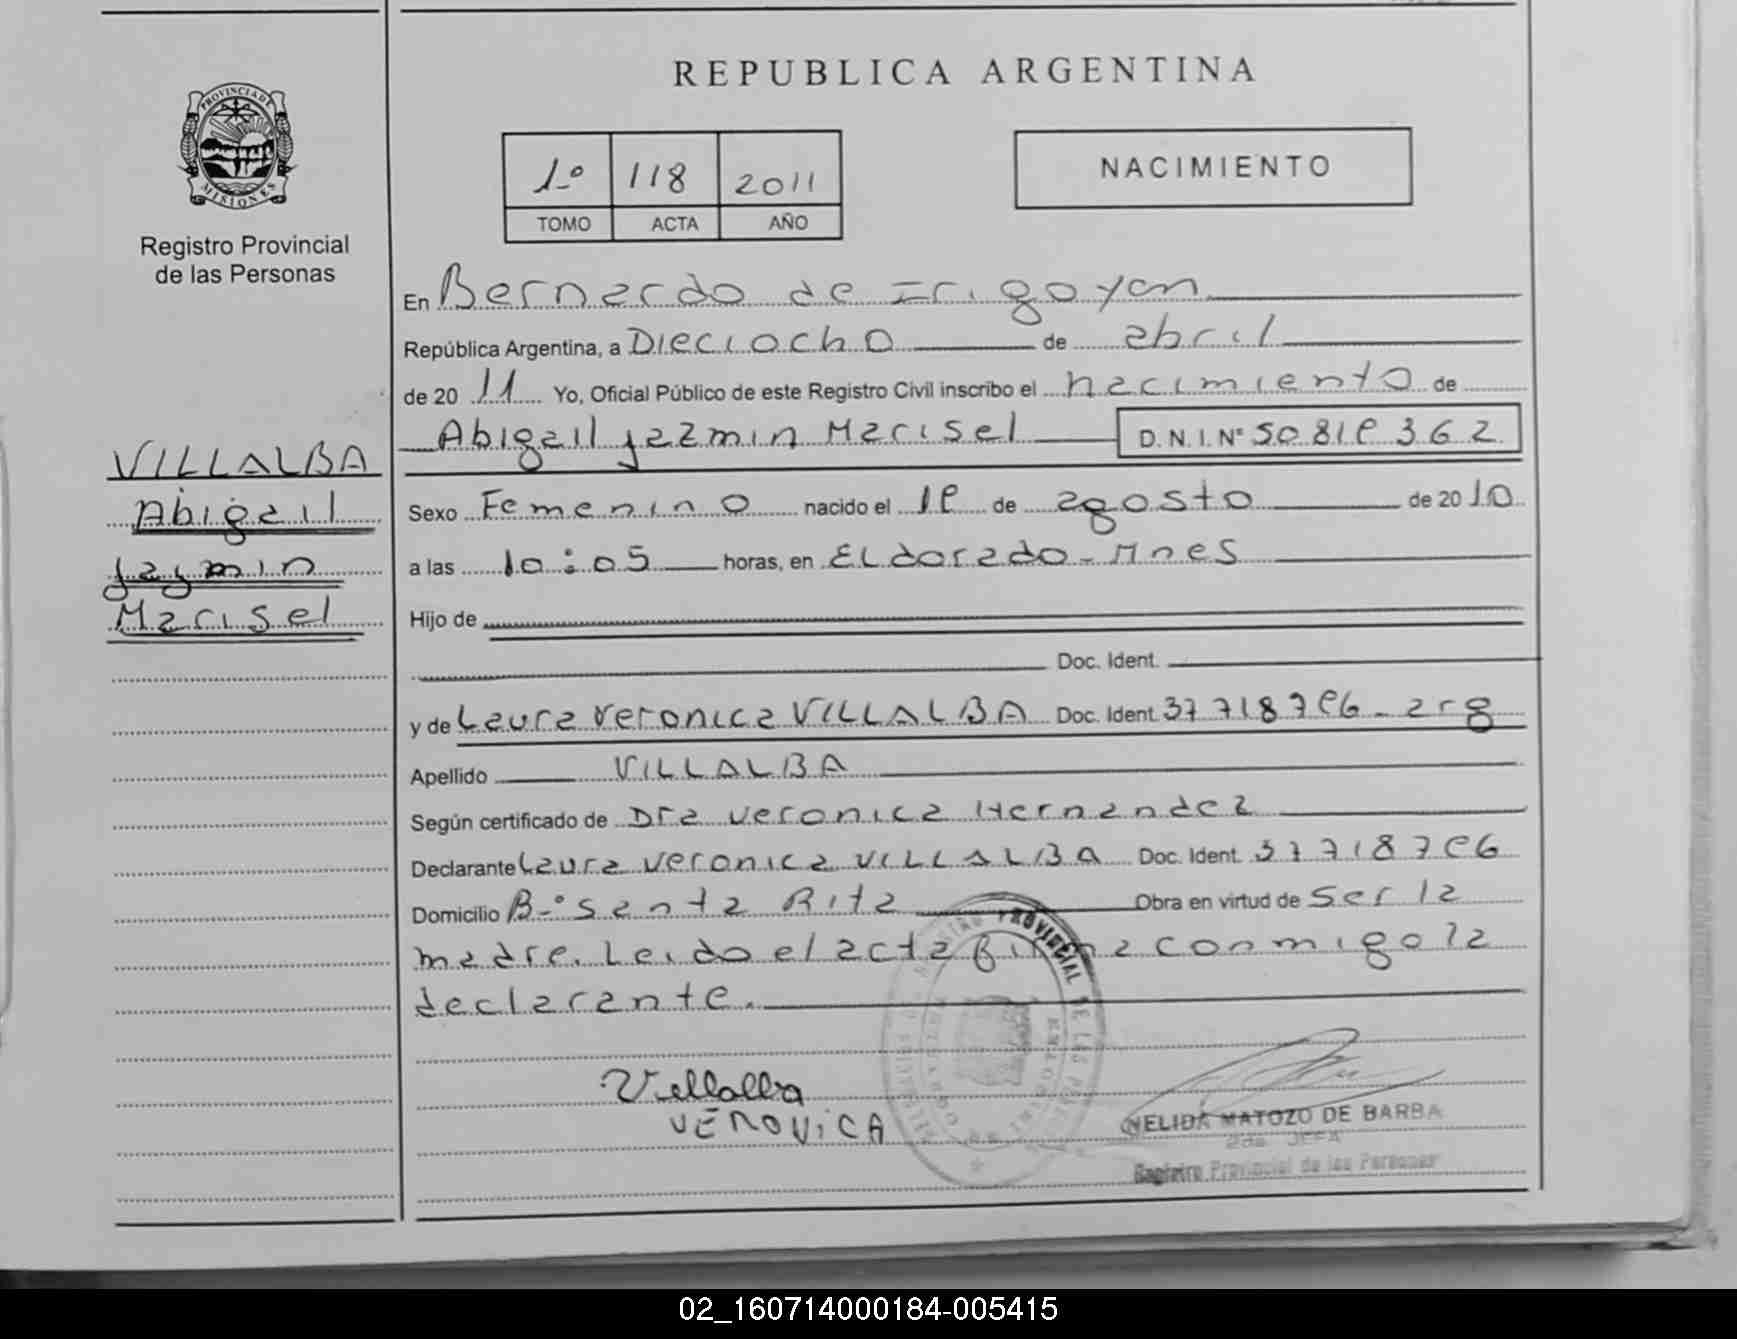 REPUBLICA ARGENTINA
PROVINCIA DE
MISIONES
Registro Provincial
de las Personas
1º 118 2011
TOMO ACTA AÑO
NACIMIENTO
VILLALBA
Abigail
Jazmin
Marisel
En Bernardo de Irigoyen
República Argentina, a Dieciocho de abril
de 20 11 Yo, Oficial Público de este Registro Civil inscribo el nacimiento de
Abigail Jazmin Marisel D.N.I.Nº
Sexo Femenino nacido el de agosto de 2010
a las 10:05 horas, en Eldorado - Mnes
Hijo de
Doc. Ident.
y de Laura Veronica VILLALBA Doc. Ident. arg
Apellido VILLALBA
Según certificado de Dra Veronica Hernandez
Declarante Laura Veronica VILLALBA Doc. Ident.
Domicilio Bº Santa Rita Obra en virtud de Ser la
madre. Leido el acta firma conmigo la
declarante.
Villalba
VERONICA
NELIDA MATOZO DE BARBA
2da JEFA
Registro Provincial de las Personas
02_160714000184-005415